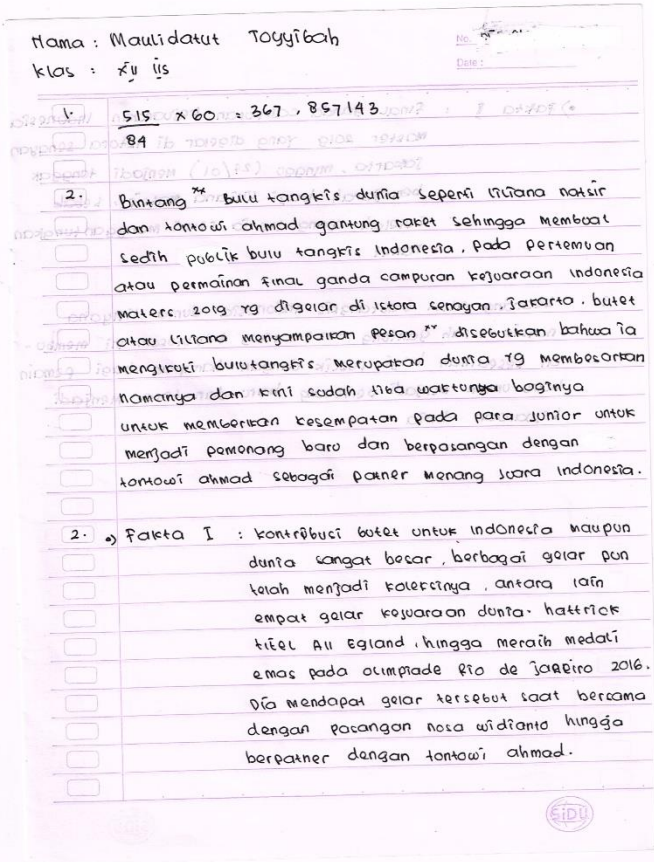 Nama : Maulidatut Toyyibah
No.
Klas : XII IIS
Date :
1. 515 x 60 = 367,857143
84
2. Bintang ** bulu tangkis dunia seperti liliana natsir
dan tontowi ahmad gantung raket sehingga membuat
sedih publik bulu tangkis Indonesia. pada pertemuan
atau permainan final ganda campuran kejuaraan Indonesia
maters 2019 yg digelar di Istora senayan, jakarta. butet
atau liliana menyampaikan pesan ** disebutkan bahwa ia
mengikuti bulutangkis merupakan dunia yg membesarkan
namanya dan kini sudah tiba waktunya baginya
untuk memberikan kesempatan pada para junior untuk
menjadi pemenang baru dan berpasangan dengan
tontowi ahmad sebagai patner menang juara Indonesia.
2. •) Fakta I : kontribusi butet untuk indonesia maupun
dunia sangat besar, berbagai gelar pun
telah menjadi koleksinya, antara lain
empat gelar kejuaraan dunia. hattrick
titel All Egland, hingga meraih medali
emas pada olimpiade Rio de janeiro 2016.
Dia mendapat gelar tersebut saat bersama
dengan pasangan nosa widianto hingga
berpatner dengan tontowi ahmad.
SiDU